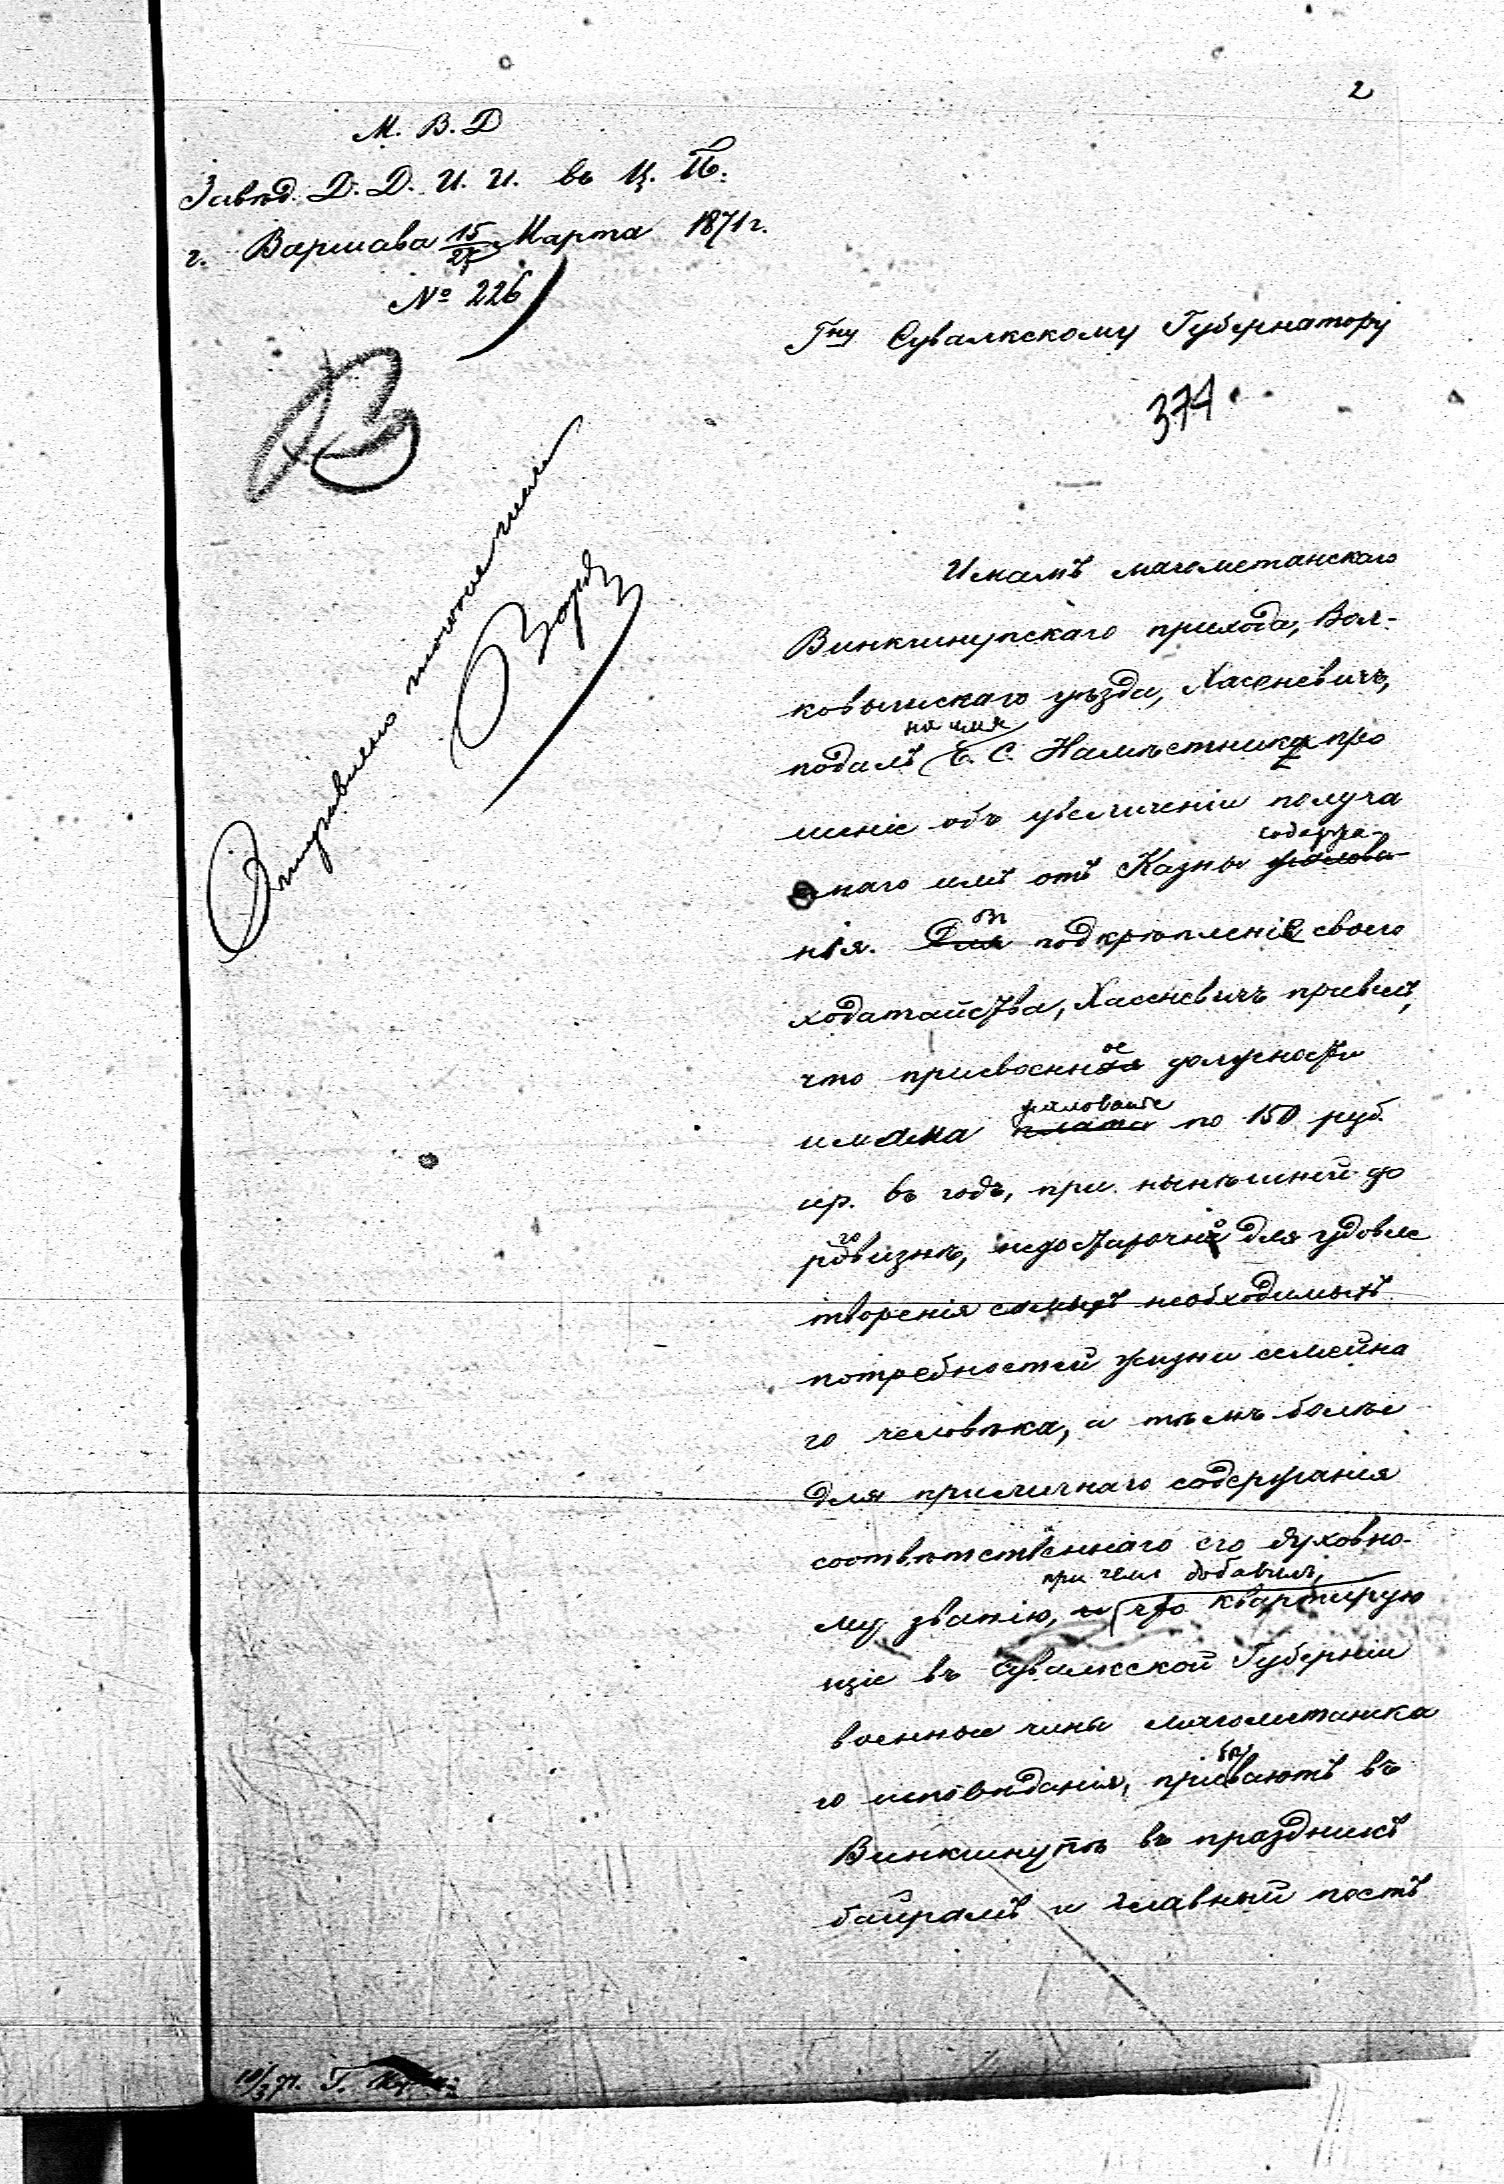 2
М. В. Д
Завѣд. Д. Д. И. И. въ Ц. П.
г. Варшава 15/27 Марта 1871 г.
№ 226
Гну Сувалкскому Губернатору
374.
Отправлено
Имамъ магометанскаго
Винкшнупскаго прихода, Вол-
ковышскаго уѣзда, Хасеневичъ,
на имя
подалъ Е. С. Намѣстника про
шеніе объ увеличеніи получа
содержа-
емаго имъ отъ Казны жалова-
нія. Для въ подкрѣпленіе своего
ходатайства, Хасеневичъ привелъ,
что присвоенное должности
жалованье
имама плата по 150 руб.
ср. въ годъ, при нынѣшней до
роговизнѣ, недостаточно для удовле
творенія самыхъ необходимыхъ
потребностей жизни семейна
го человѣка, а тѣмъ болѣе
для приличнаго содержанія
соотвѣтственнаго его духовно-
при чемъ добавилъ,
му званію, и что квартирую
щіе въ Сувалкской Губерніи
военные чины магометанска
го исповѣданія, прибываютъ въ
Винкшнупъ въ праздникъ
байрамъ и главный постъ
10/3 71. Г.